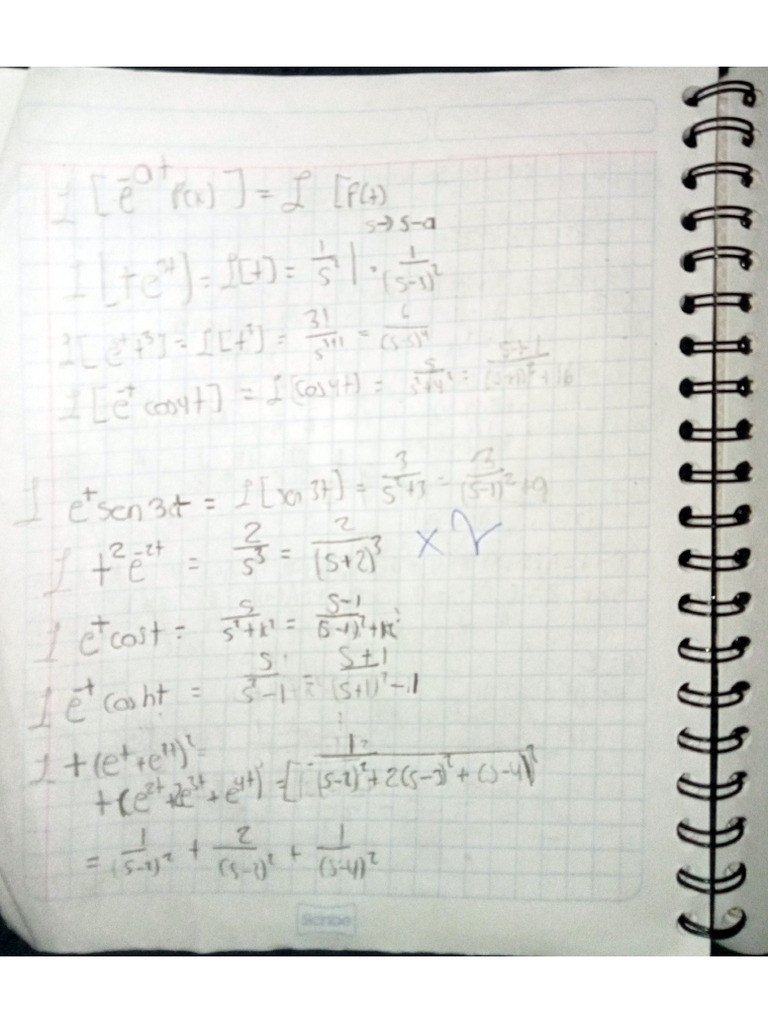 ℒ[e^-at f(x)] = ℒ[f(t)
s→s-a
ℒ[te^2t] = ℒ[t] = 1/s² | · 1/(s-2)²
ℒ[t³] = 3!/s^3+1 = 6
ℒ[e^-t cos4t] = ℒ[cos4t] = s/s²+4² = s+1/(s+1)²+16
ℒ e^t sen3t = ℒ[sen3t] = 3/s²+3 = 3/(s-1)²+9
ℒ t²e^-2t = 2/s³ = 2/(s+2)³ × 2
ℒ e^t cos t = s/s²+k² = s-1/(s-1)²+k²
ℒ e^-t cosh t = s/s²-1 = s+1/(s+1)²-1
ℒ t(e^t+e^2t)² =
t(e^2t+2e^3t+e^4t) = [1/(s-2)²+2(s-3)²+(s-4)²
= 1/(s-2)² + 2/(s-3)² + 1/(s-4)²
Scribe